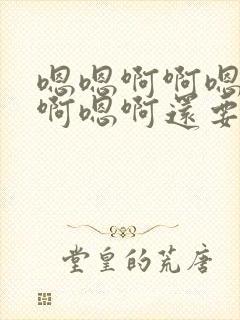 嗯嗯啊啊嗯
啊嗯啊還要
堂皇的荒唐